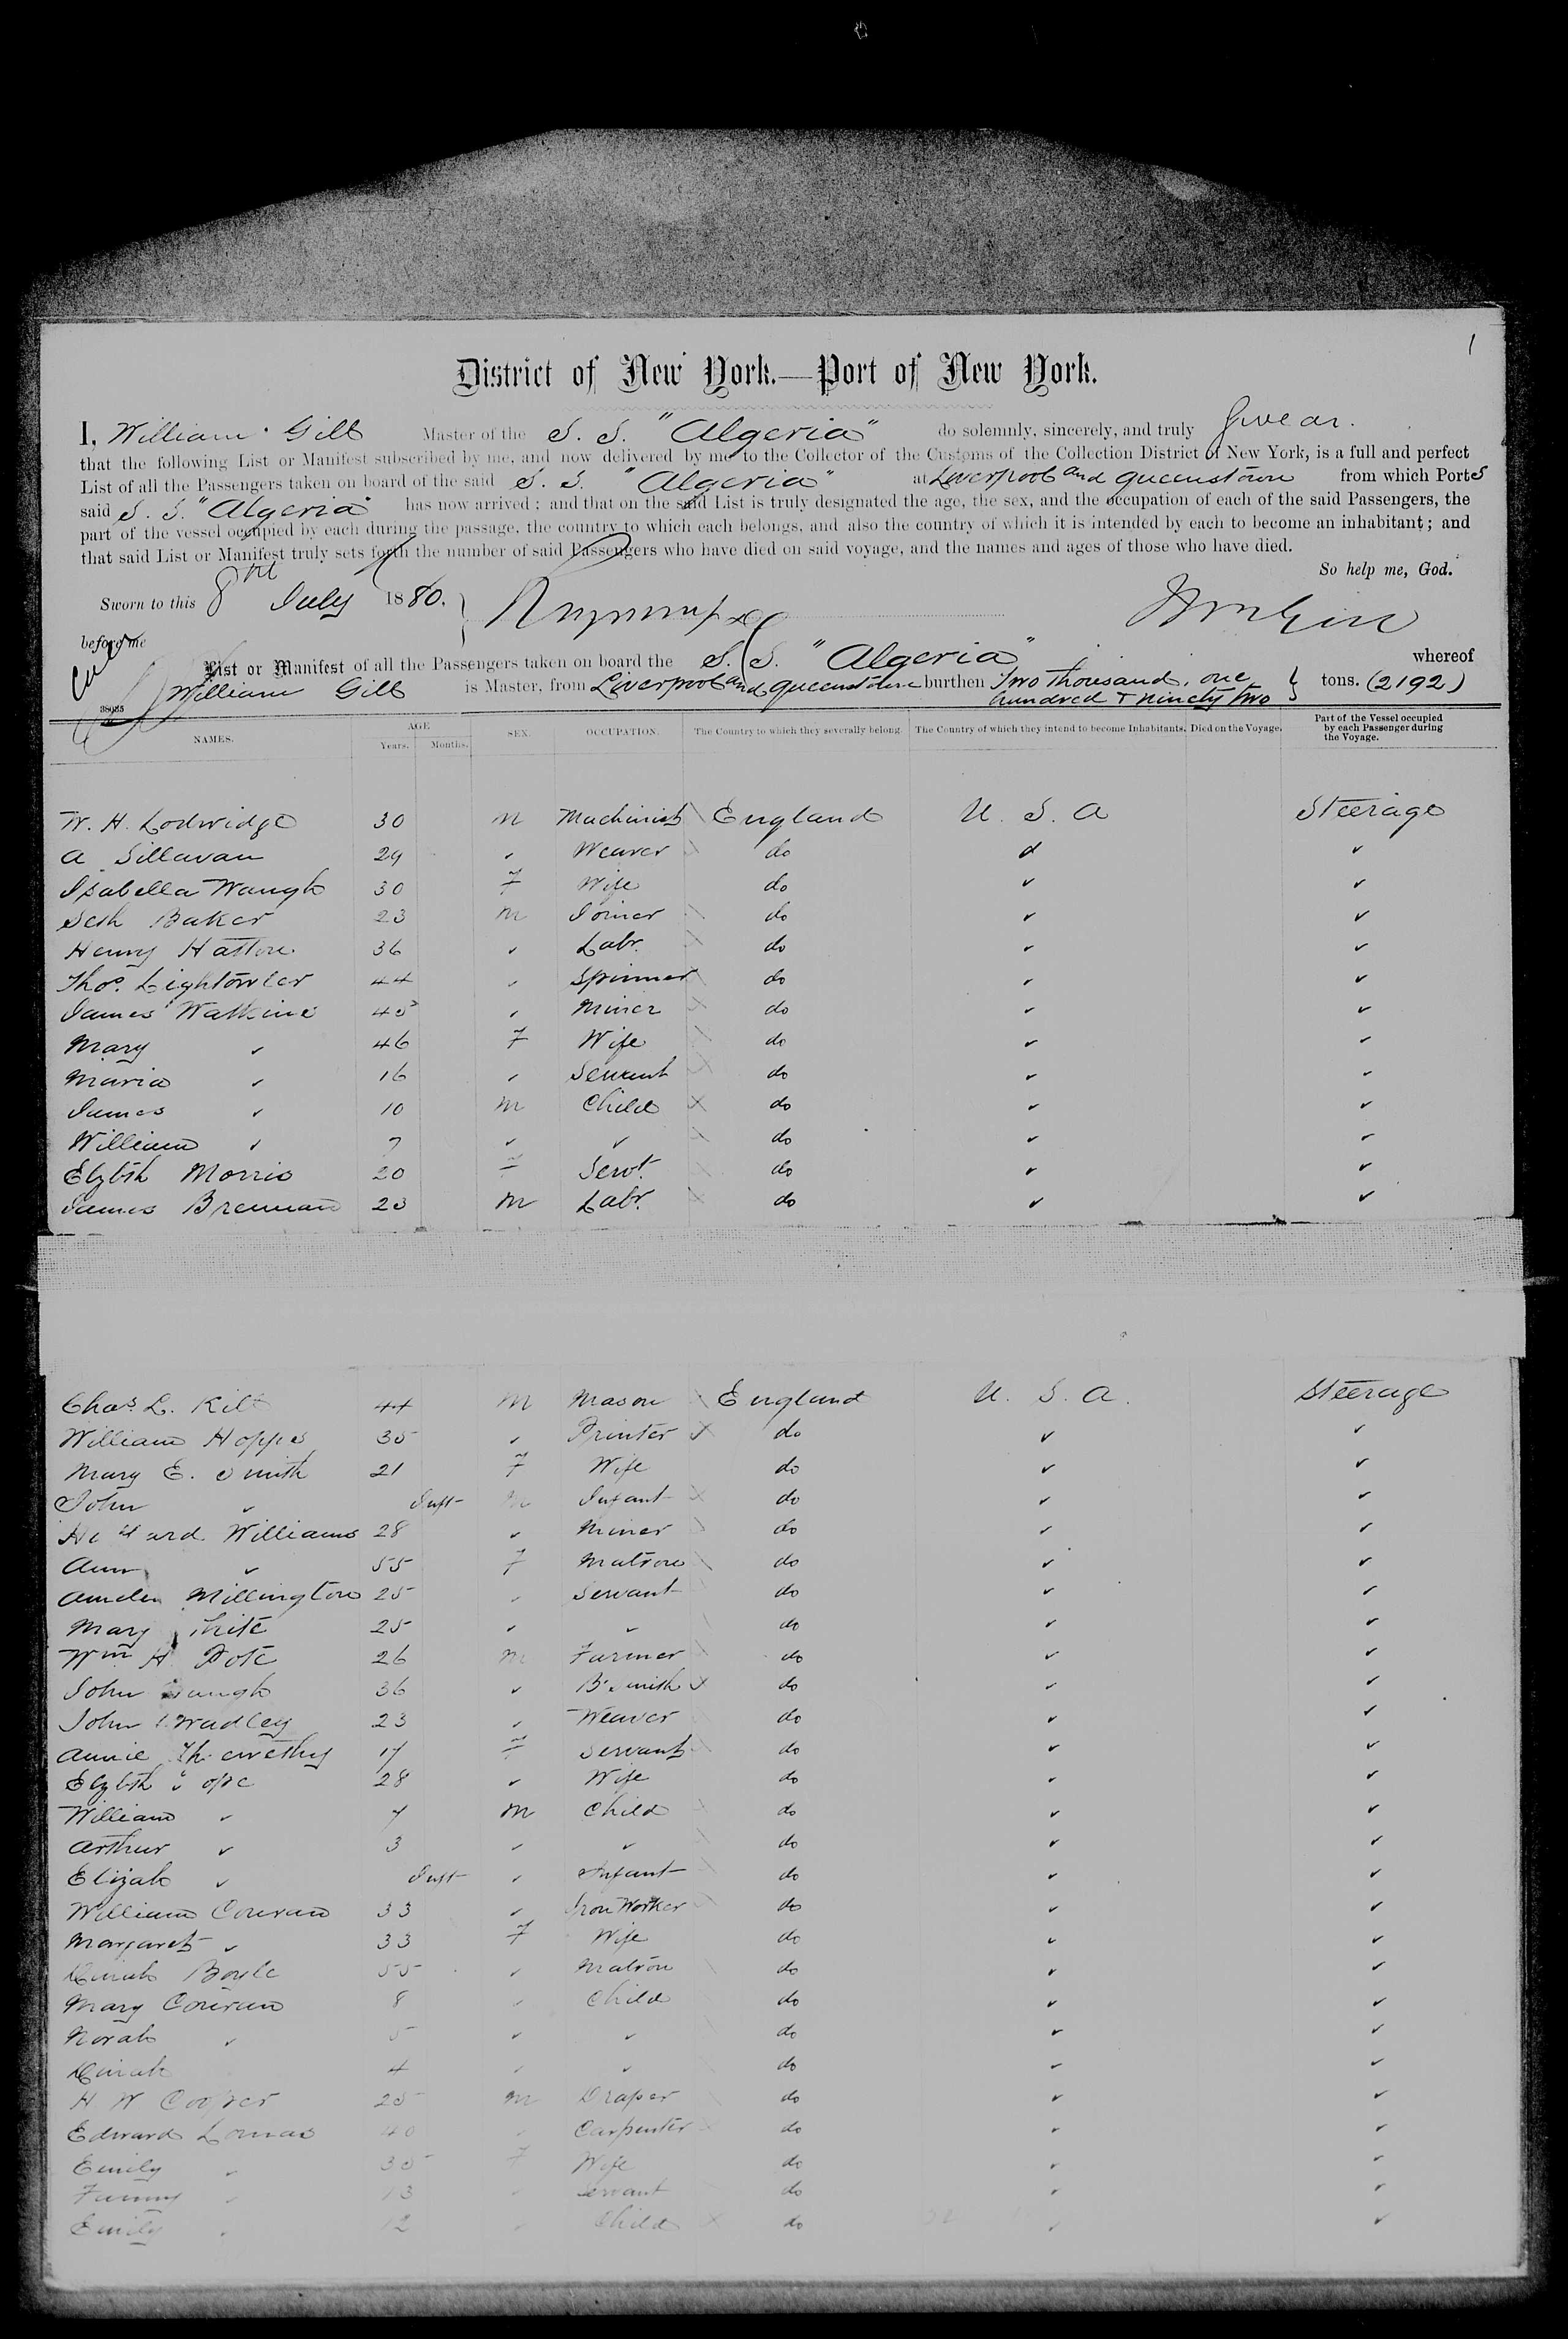 1
District of New York.—Port of New York.
I, William Gill Master of the S. S. "Algeria" do solemnly, sincerely, and truly Swear.
that the following List or Manifest subscribed by me, and now delivered by me to the Collector of the Customs of the Collection District of New York, is a full and perfect
List of all the Passengers taken on board of the said S. S. "Algeria" at Liverpool and Queenstown from which Ports
said S. S. "Algeria" has now arrived; and that on the said List is truly designated the age, the sex, and the occupation of each of the said Passengers, the
part of the vessel occupied by each during the passage, the country to which each belongs, and also the country of which it is intended by each to become an inhabitant; and
that said List or Manifest truly sets forth the number of said Passengers who have died on said voyage, and the names and ages of those who have died.
So help me, God.
Sworn to this 8th July 1880.
before me
List or Manifest of all the Passengers taken on board the S. S. "Algeria" whereof
William Gill is Master, from Liverpool and Queenstown burthen Two thousand, one hundred & ninety two tons. (2192)
38035
NAMES. AGE Years. Months. SEX. OCCUPATION. The Country to which they severally belong. The Country of which they intend to become Inhabitants. Died on the Voyage. Part of the Vessel occupied by each Passenger during the Voyage.
W. H. Lodwidge 30 m Machinist England U. S. A Steerage
A Sillavan 29 " Weaver do
Isabella Waugh 30 F Wife do " "
Seth Baker 23 m Joiner do " "
Henry Hatton 36 " Labr. do " "
Thos. Lightowler 44 " Spinner do " "
James Watkins 45 " Miner do " "
Mary " 46 F Wife do " "
Maria " 16 " Servant do " "
James " 10 m Child do " "
William " 7 " " do " "
Elzbth Morris 20 F Servt. do " "
James Brennan 23 m Labr. do " "
Chas. L. 44 m Mason England U. S. A. Steerage
William Hopps 35 " Printer do " "
Mary E. Smith 21 F Wife do " "
John " Inft m Infant do " "
Williams 28 " Miner do " "
Ann " 55 F Matron do " "
Millington 25 " Servant do " "
Mary 25 " " do " "
Wm H 26 m Farmer do " "
John 36 " B'Smith do " "
John 23 " Weaver do " "
Annie 17 F Servant do " "
Elzbth 28 " Wife do " "
William " 7 m Child do " "
Arthur " 3 " " do " "
Elizah " Inft " Infant do " "
William Couran 33 " Iron Worker do " "
Margaret " 33 F Wife do " "
Dinah Boyle 55 " Matron do " "
Mary Couran 8 " Child do " "
Norah " 5 " " do " "
Dinah 4 " " do " "
H W Cooper 25 m Draper do " "
Edward Lomas 40 " Carpenter do " "
Emily " 35 F Wife do " "
Fanny " 13 " Servant do " "
Emily " 12 " Child do " "